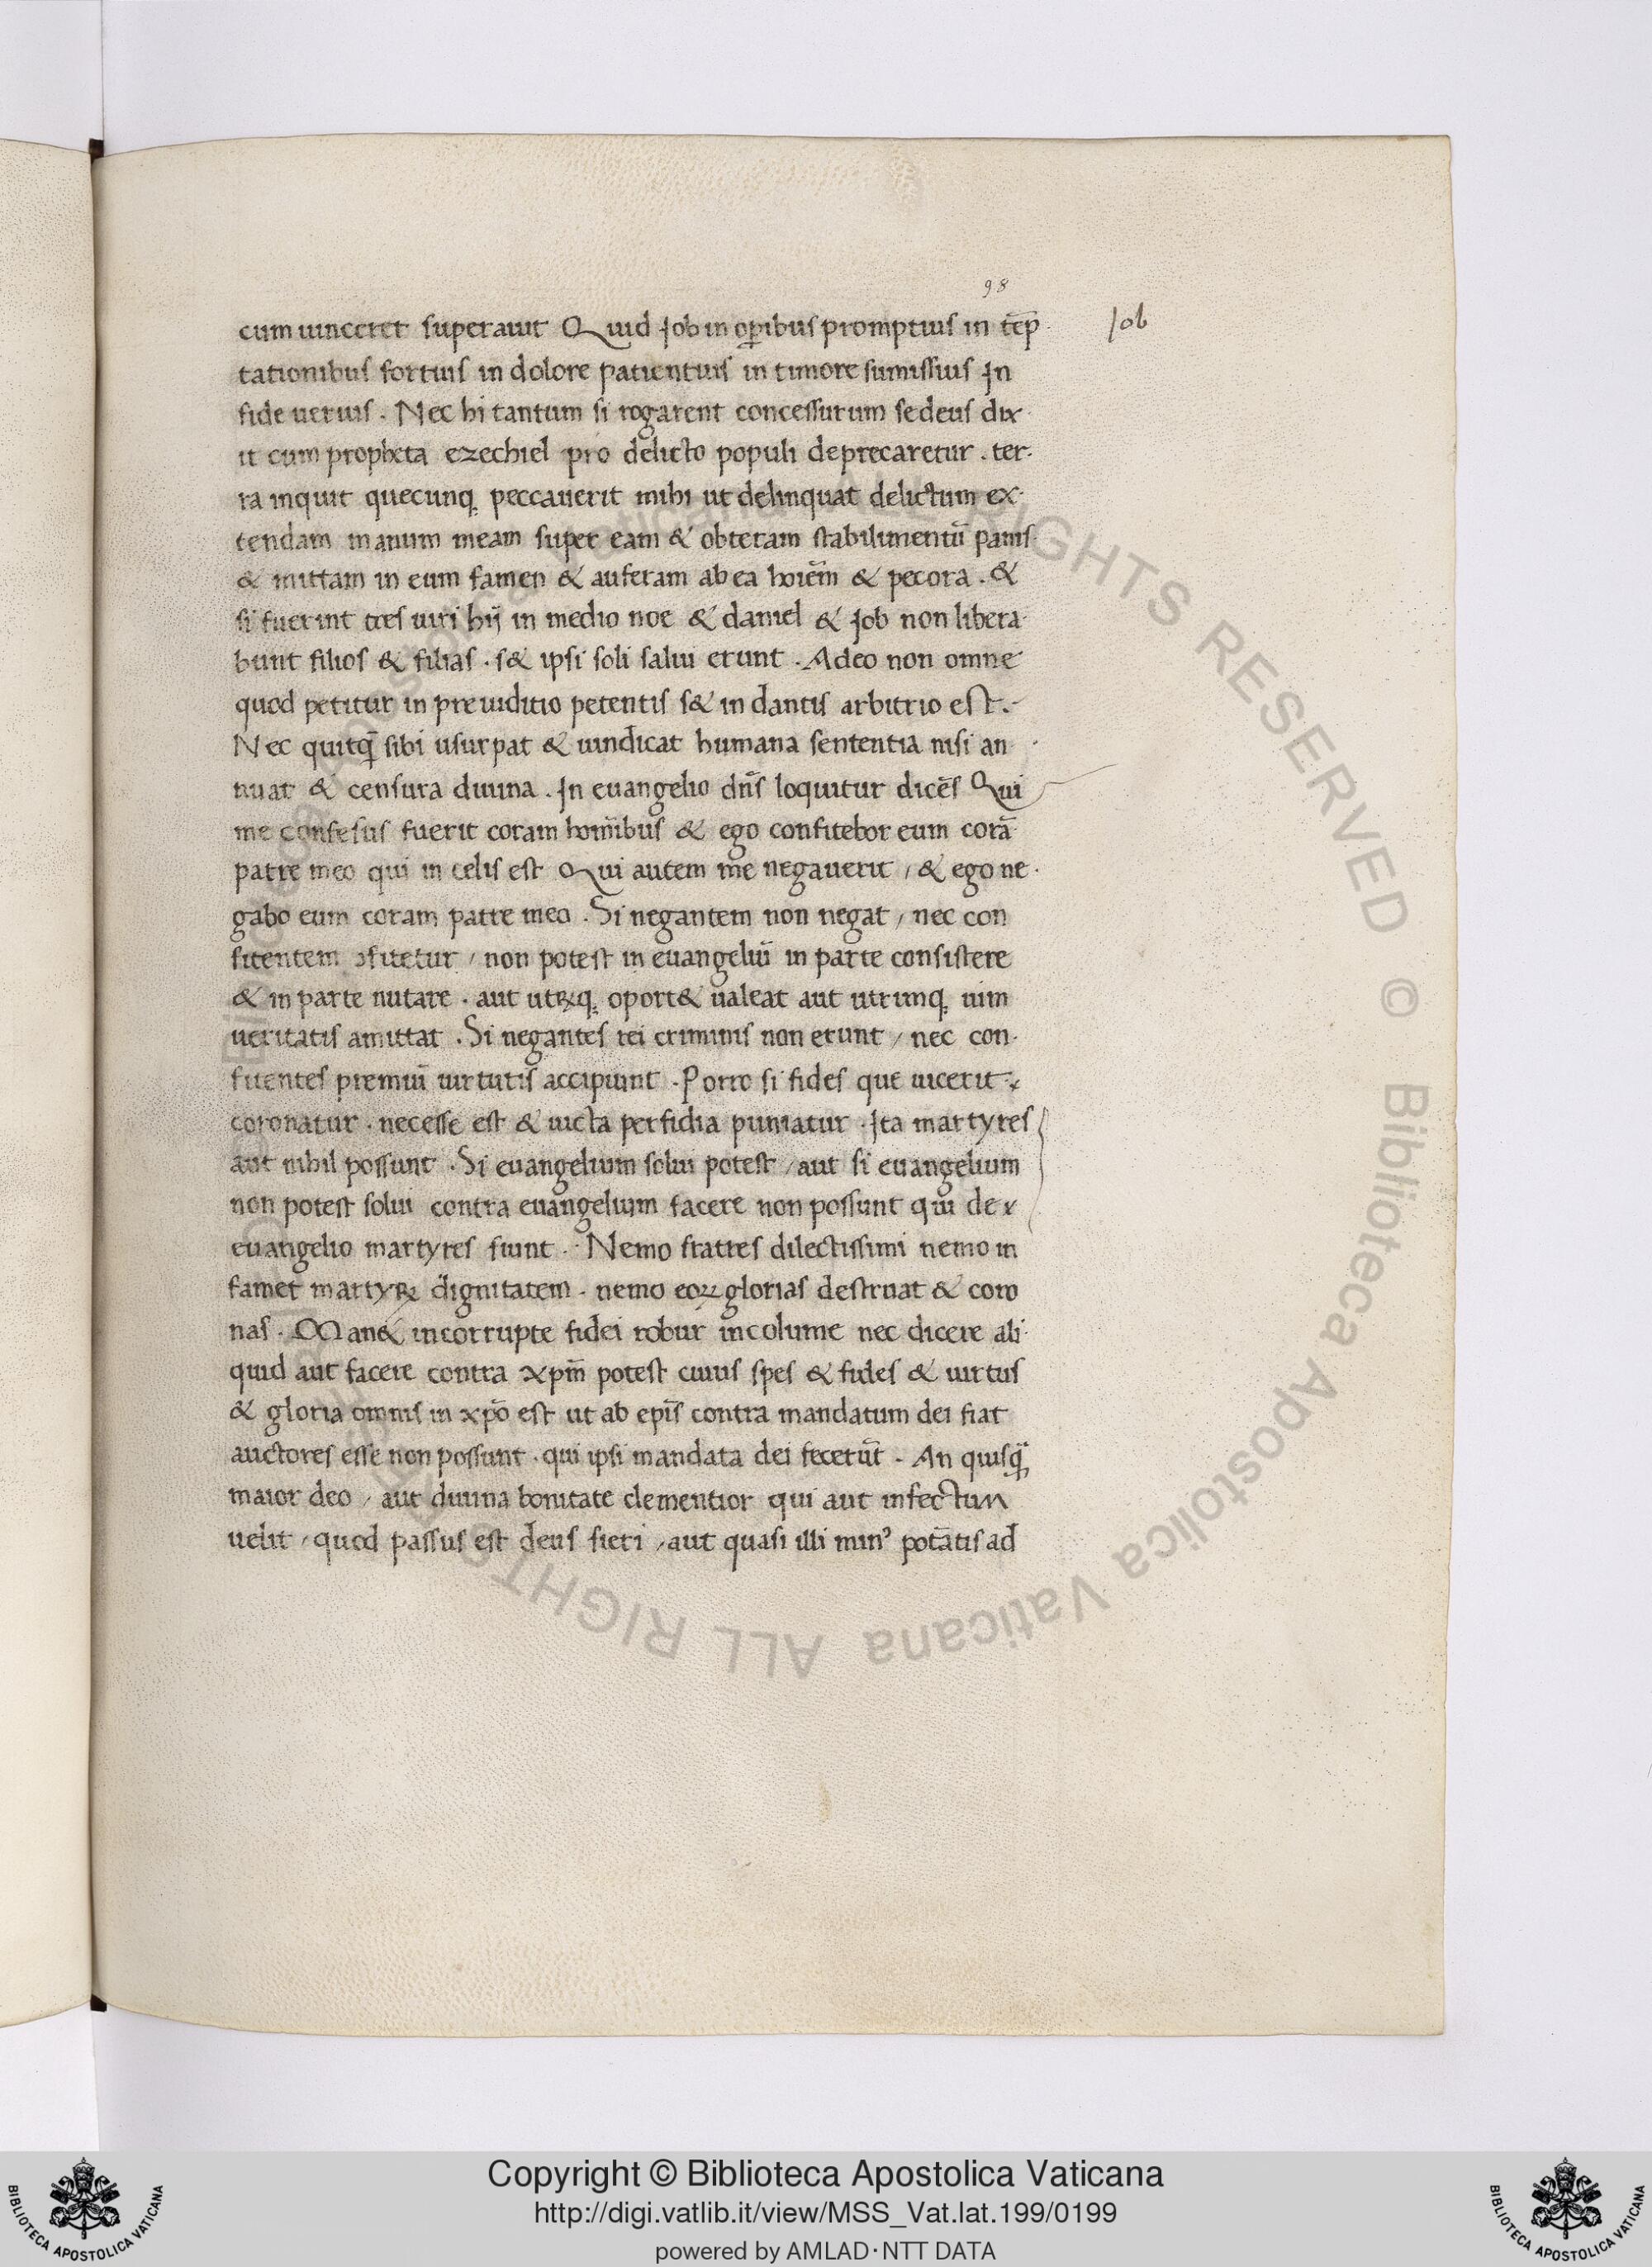 98
cum uinceret superauit Quid Job in oꝑibus promptius in tēp̄
Job
tationibus fortius in dolore patientius in timore sumissius In
fide uerius . Nec hi tantum si rogarent concessurum se deus dix
it cum propheta ezechiel pro delicto populi deprecaretur . ter-
ra inquit quecunq; peccauerit mihi ut delinquat delictum ex-
tendam manum meam super eam & obteram stabilimentū panis
& mittam in eum famen & auferam ab ea hoiēm & pecora . &
si fuerint tres uiri hij in medio noe & daniel & Job non libera
bunt filios & filias . s& ipsi soli salui erunt . Adeo non omne
quod petitur in preiuditio petentis s& in dantis arbitrio est .
Nec quitq̄ sibi usurpat & uindicat humana sententia nisi an
nuat & censura diuina . In euangelio dn̄s loquitur dicēs Qui
me confesus fuerit coram homībus & ego confitebor eum corā
patre meo qui in celis est Qui autem me negauerit / & ego ne
gabo eum coram patre meo . Si negantem non negat / nec con
fitentem ɔfitetur / non potest in euangeliū in parte consistere
& in parte nutare . aut utrꝝq; oport& ualeat aut utrunq; uim
ueritatis amittat . Si negantes rei criminis non erunt / nec con-
fitentes premiū uirtutis accipiunt . Porro si fides que uicerit
coronatur . necesse est & uicta perfidia puniatur . Ita martyres
aut nihil possunt . Si euangelium solui potest / aut si euangelium
non potest solui contra euangelium facere non possunt qui de
euangelio martyres fiunt . Nemo fratres dilectissimi nemo in
famet martyrꝝ dignitatem . nemo eoꝝ glorias destruat & coro
nas . Man& incorrupte fidei robur incolume nec dicere ali
quid aut facere contra xpm̄ potest cuius spes & fides & uirtus
& gloria omnis in xpō est ut ab ep̄is contra mandatum dei fiat
auctores esse non possunt . qui ipsi mandata dei fecerūt . An quisq̄
maior deo / aut diuina bonitate clementior qui aut infectum
uelit / quod passus est deus fieri / aut quasi illi minꝰ potātis ad
© Biblioteca Apostolica Vaticana ALL RIGHTS RESERVED
Copyright © Biblioteca Apostolica Vaticana
http://digi.vatlib.it/view/MSS_Vat.lat.199/0199
powered by AMLAD·NTT DATA
BIBLIOTECA APOSTOLICA VATICANA
BIBLIOTECA APOSTOLICA VATICANA